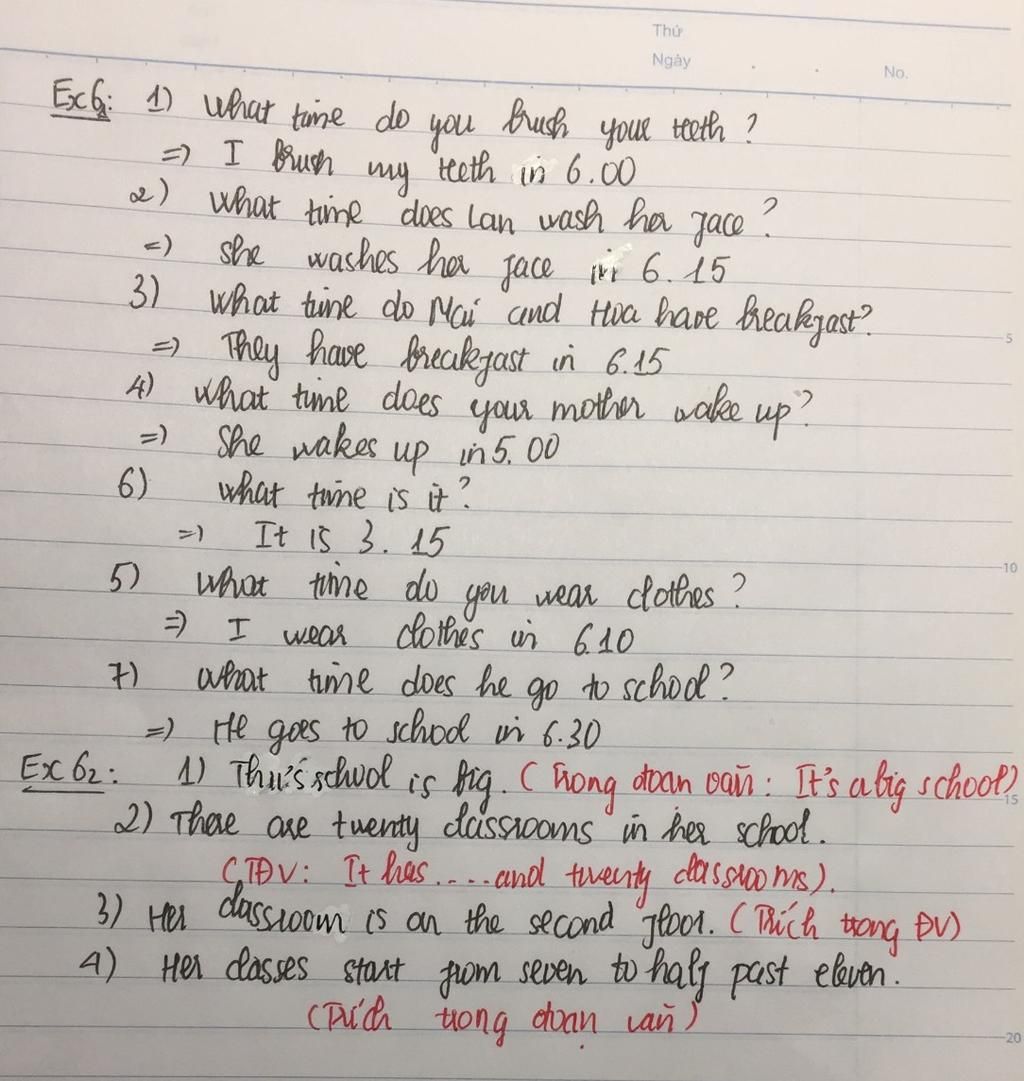 Thứ
Ngày . . No.
Ex6: 1) What time do you brush your teeth ?
=> I brush my teeth in 6.00
2) What time does Lan wash her face ?
=) She washes her face in 6.15
3) What time do Mai and Hoa have breakfast?
=> They have breakfast in 6.15
5
4) What time does your mother wake up?
=) She wakes up in 5.00
6) What time is it ?
=) It is 3.15
5) What time do you wear clothes ?
10
=> I wear clothes in 6.10
7) What time does he go to school ?
=) He goes to school in 6.30
Ex 62: 1) Thu's school is big. ( Trong đoan văn : It's a big school)
15
2) There are twenty classrooms in her school.
(TĐV: It has .... and twenty classrooms).
3) Her classroom is on the second floor. ( Trích trong ĐV)
4) Her classes start from seven to half past eleven.
(Trích trong đoạn văn)
20